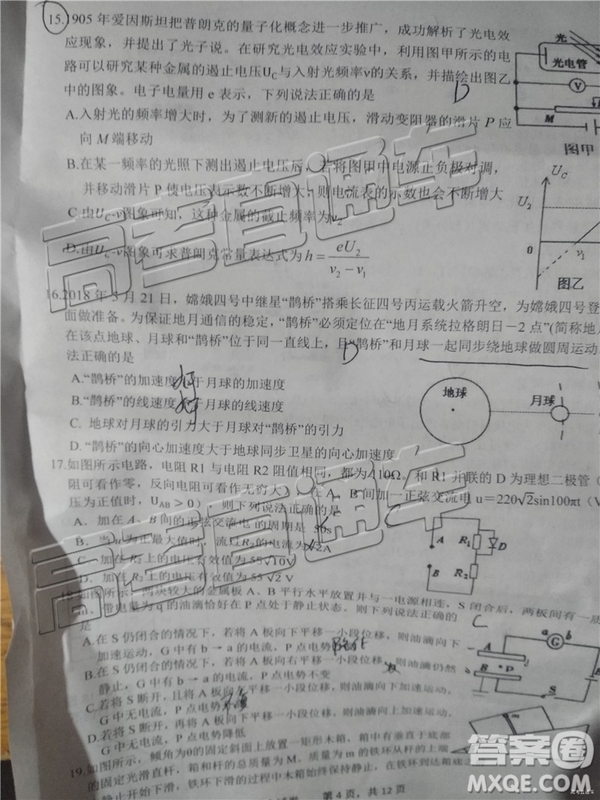 15.1905年爱因斯坦把普朗克的量子化概念进一步推广，成功解析了光电效
应现象，并提出了光子说。在研究光电效应实验中，利用图甲所示的电
路可以研究某种金属的遏止电压UC与入射光频率ν的关系，并描绘出图乙
中的图象。电子电量用e表示，下列说法正确的是
D
A.入射光的频率增大时，为了测新的遏止电压，滑动变阻器的滑片P应
向M端移动
B.在某一频率的光照下测出遏止电压后，若将图甲中电源正负极对调，
并移动滑片P使电压表示数不断增大，则电流表的示数也会不断增大
C.由UC-ν图象可知，这种金属的截止频率为ν2
D.由UC-ν图象可求普朗克常量表达式为h=eU2/(ν2-ν1)
光
光电管
V
M
图甲
UC
U2
ν1
图乙
16.2018年5月21日，嫦娥四号中继星“鹊桥”搭乘长征四号丙运载火箭升空，为嫦娥四号登
面做准备。为保证地月通信的稳定，“鹊桥”必须定位在“地月系统拉格朗日－2点”(简称地
在该点地球、月球和“鹊桥”位于同一直线上，且“鹊桥”和月球一起同步绕地球做圆周运动
法正确的是
D
A.“鹊桥”的加速度 于月球的加速度
B.“鹊桥”的线速度 于月球的线速度
C. 地球对月球的引力大于月球对“鹊桥”的引力
D. “鹊桥”的向心加速度大于地球同步卫星的向心加速度
地球
月球
17.如图所示电路，电阻R1与电阻R2阻值相同，都为10Ω，和R1并联的D为理想二极管（
阻可看作零，反向电阻可看作无穷大），在A、B间加一正弦交流电u＝220√2sin100πt（V
压为正值时，UAB＞0），则下列说法正确的是
A．加在A、B间的正弦交流电的周期是
B．当 为正最大时，流过R2的电流为 2A
C．加在R2上的电压有效值为55√10V
D．加在R2上的电压有效值为55√2 V
A
B
R1
R2
D
18.如图所示，两块较大的金属板A、B平行水平放置并与一电源相连，S闭合后，两板间有一质
m、带电量为q的油滴恰好在P点处于静止状态。则下列说法正确的
C
A.在S仍闭合的情况下，若将A板向下平移一小段位移，则油滴向下
加速运动，G中有b→a的电流，P点电势
B.在S仍闭合的情况下，若将A板向右平移一小段位移，则油滴仍然
静止，G中有b→a的电流，P点电势不变
C.若将S断开，且将A板向 平移一小段位移，则油滴向下加速运动
G中无电流，P点电势
D.若将S断开，再将A板向下平移一小段位移，则油滴向下加速运动
G中无电流，P点电势降低
a
b
G
A
B
P
S
19.如图所示，倾角为θ的固定斜面上放置一矩形木箱，箱中有垂直于底部
的固定光滑直杆。箱和杆的总质量为M，质量为m的铁环从杆的上端
开始下滑，铁环下滑的过程中木箱始终保持静止，在铁环到达箱底
第4页，共12页
高考直通车
高考直通车
答案圈
MXQE.COM